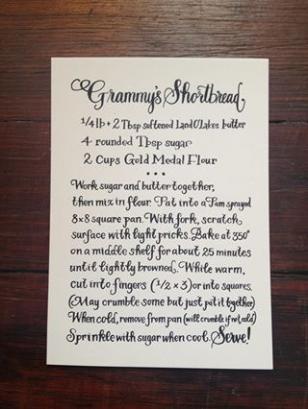 Grammy's Shortbread
1/4 lb + 2 Tbsp softened Land O'Lakes butter
4 rounded Tbsp sugar
2 Cups Gold Medal Flour
• • •
Work sugar and butter together,
then mix in flour. Pat into a Pam sprayed
8x8 square pan. With fork, scratch
surface with light pricks. Bake at 350°
on a middle shelf for about 25 minutes
until lightly browned. While warm,
cut into fingers (1/2 x 3) or into squares.
(May crumble some but just pat it together)
When cold, remove from pan (will crumble if not cold)
Sprinkle with sugar when cool. Serve!